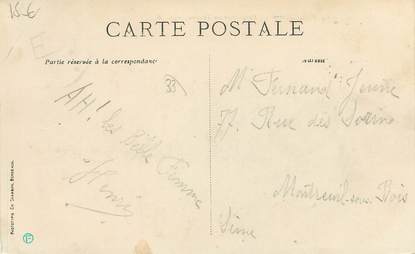 15€
E
CARTE POSTALE
Partie réservée à la correspondance
33
AH! les Belle Femme
Henri
Mr Fernand
77 Rue des
Montreuil-sous-Bois
Seine